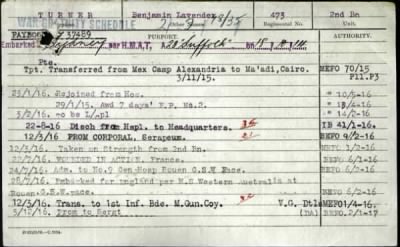 TURNER Benjamin Lavender 473 2nd Bn
WAR GRATUITY SCHEDULE
PURPORT. Regimental No. AUTHORITY.
PAYBOOK 37489
Embarked Sydney per H.M.A.T. A 23 "Suffolk" on 18
Pte.
Tpt. Transferred from Mex Camp Alexandria to Ma'adi, Cairo. MEFO 70/15
3/11/15. P11.P3
25/1/16. Rejoined from Hos. " 10/5-16
29/1/15. Awd 7 days' F.P. No.2. " 18/4-16
3/2/16. To be L/Cpl " 14/2-16
22-8-16 Disch from Hspl. to Headquarters. IB 41/1-16.
12/3/16. FROM CORPORAL, Serapeum. MEFO 9/2-16
12/3/16. Taken on Strength from 2nd Bn. " "
22/7/16. WOUNDED IN ACTION, France. BEFO
24/7/16. Adm. to No.9 Gen Hosp Rouen G.S.W Face. " 6/2-16
28/7/16. Embarked for England per H.S. Western Australia at
Rouen G.S.W. Face. BEFO 6/2-16
12/3/16. Trans. to 1st Inf. Bde. M.Gun.Coy. V.G. Dtls MEFO1/4-16.
3/12/16. Prom to Sergt (DA) BEFO. 2/1-17